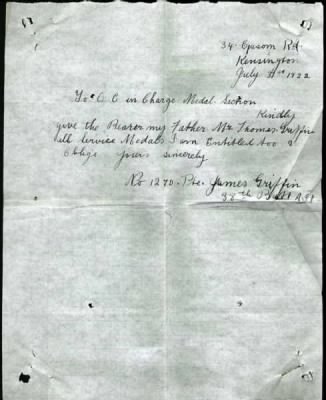 34 Epsom Rd
Kensington
July 1922
To O C in Charge Medal Section
Kindly
give the Bearer my Father Mr Thomas Griffin
all Service Medals I am Entitled too &
Oblige yours sincerely
No 1270. Pte. James Griffin
38th Batt A.I.F